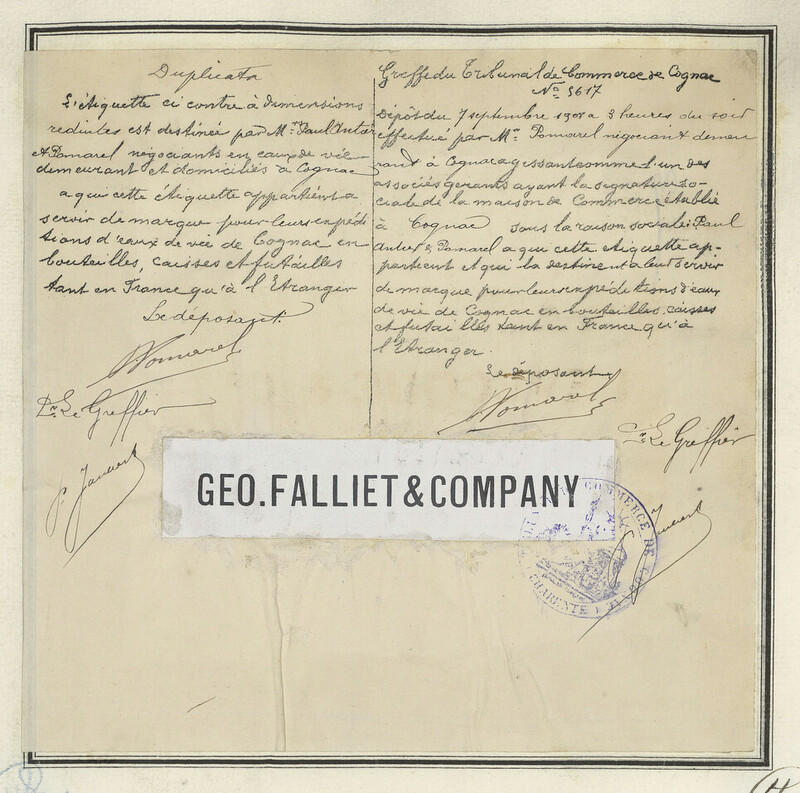 Duplicata
L'étiquette ci contre à dimensions
réduites est destinée par Mrs Paul
et Pomarel négociants en eaux de vie
demeurant et domiciliés à Cognac
a qui cette étiquette appartient a
servir de marque pour leurs expédi
tions d'eaux de vie de Cognac en
bouteilles, caisses et futailles
tant en France qu'à l'Etranger
Le déposant
Pomarel
Pr. Le Greffier
Greffe du Tribunal de Commerce de Cognac
No 5617
Dépôt du 7 septembre 1901 a 3 heures du soir
effectué par Mr Pomarel négociant demeu
rant à Cognac agissant comme l'un des
associés gérants ayant la signature so-
ciale de la maison de Commerce établie
à Cognac sous la raison sociale: Paul
& Pomarel a qui cette étiquette ap-
partient et qui la destinent a leur servir
de marque pour leurs expéditions d'eaux
de vie de Cognac en bouteilles, caisses
et futailles tant en France qu'à
l'Etranger.
Le déposant
Pomarel
Pr. Le Greffier
GEO. FALLIET & COMPANY
COMMERCE DE
CHARENTE
H